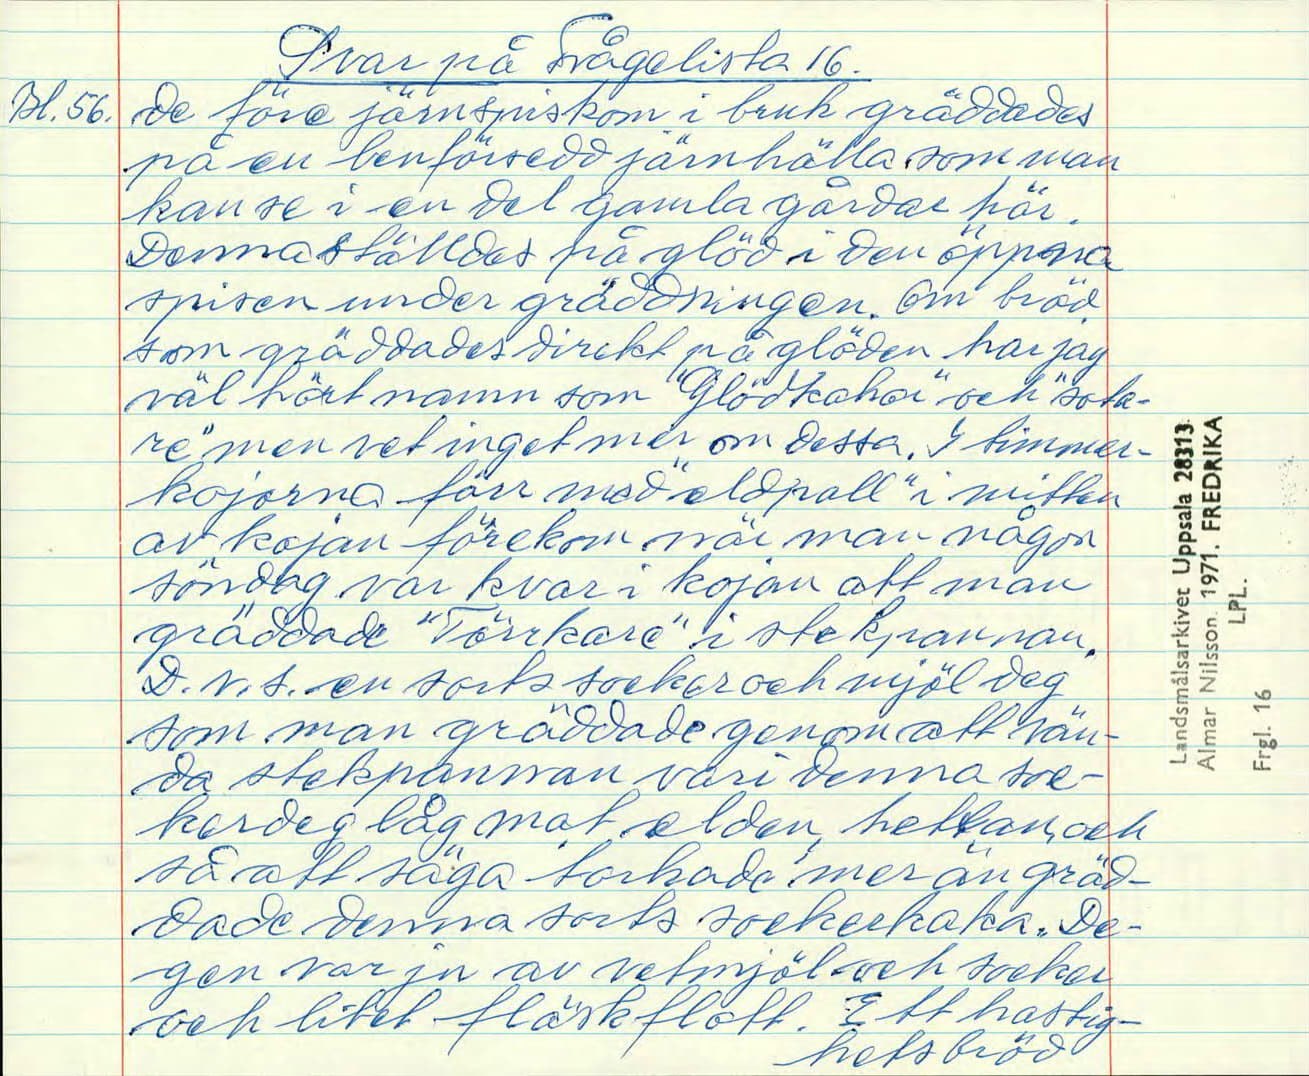 Svar på Frågelista 16.
Bl. 56. de före järnspis kom i bruk gräddades
på en benförsedd järnhälla som man
kan se i en del gamla gårdar här.
Denna ställdes på glöd i den öppna
spisen under gräddningen. Om bröd
som gräddades direkt på glöden har jag
väl hört namn som "Glödkakor" och "sota-
re" men vet inget mer om dessa. I timmer-
kojorna förr med "eldpall" i mitten
av kojan förekom när man någon
söndag var kvar i kojan att man
gräddade "Torrkare" i stekpannan.
D.v.s. en sorts socker och mjöl deg
som man gräddade genom att vän-
da stekpannan vari denna soc-
kerdeg låg mot elden, hettan, och
så att säga "torkade" mer än gräd-
dade denna sorts sockerkaka. De-
gen var ju av vetmjöl och socker
och litet fläskflott. Ett hastig-
hetsbröd
Landsmålsarkivet Uppsala 28313
Almar Nilsson. 1971. FREDRIKA
LPL.
Frgl. 16